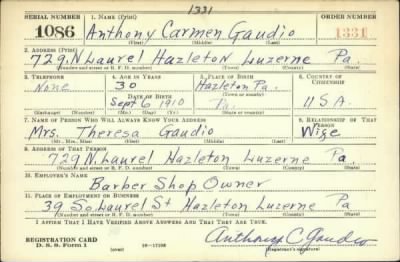 1331
SERIAL NUMBER 1. NAME (Print) ORDER NUMBER
1086 Anthony Carmen Gaudio 1331
(First) (Middle) (Last)
2. ADDRESS (Print)
729 N Laurel Hazleton Luzerne Pa.
(Number and street or R. F. D. number) (Town) (County) (State)
3. TELEPHONE 4. AGE IN YEARS 5. PLACE OF BIRTH 6. COUNTRY OF CITIZENSHIP
None 30 Hazleton Pa.
DATE OF BIRTH (Town or county)
Sept 6 1910 Pa. USA.
(Exchange) (Number) (Mo.) (Day) (Yr.) (State or country)
7. NAME OF PERSON WHO WILL ALWAYS KNOW YOUR ADDRESS 8. RELATIONSHIP OF THAT PERSON
Mrs. Theresa Gaudio Wife
(Mr., Mrs., Miss) (First) (Middle) (Last)
9. ADDRESS OF THAT PERSON
729 N. Laurel Hazleton Luzerne Pa.
(Number and street or R. F. D. number) (Town) (County) (State)
10. EMPLOYER'S NAME
Barber Shop Owner
11. PLACE OF EMPLOYMENT OR BUSINESS
39 So. Laurel St Hazleton Luzerne Pa
(Number and street or R. F. D. number) (Town) (County) (State)
I AFFIRM THAT I HAVE VERIFIED ABOVE ANSWERS AND THAT THEY ARE TRUE.
REGISTRATION CARD
D. S. S. Form 1 (over) 16—17105 Anthony C. Gaudio